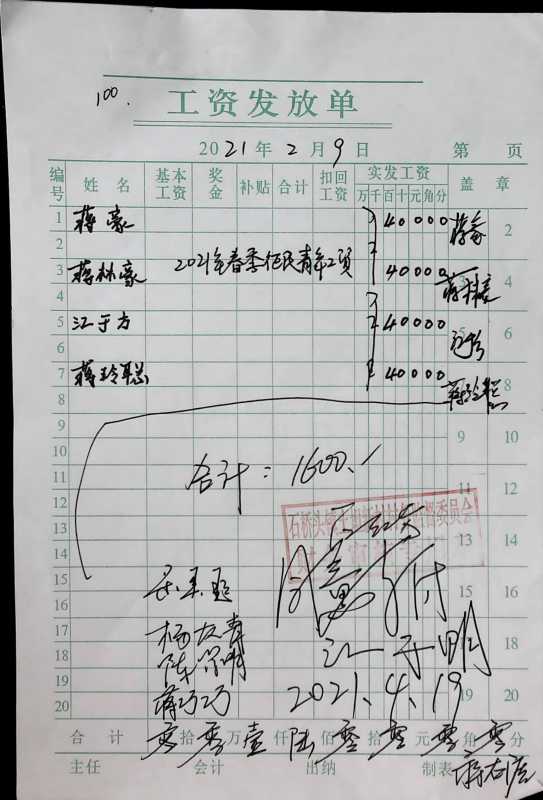 100.
工资发放单
2021年2月9日 第 页
编号 姓名 基本工资 奖金 补贴 合计 扣回工资 实发工资 盖章
万千百十元角分
1 蒋豪 40000 蒋豪 2
2 2021年春季征民青年工项
3 蒋林豪 40000 蒋林豪 4
4
5 江于方 40000 6
6
7 蒋玲聪 40000 蒋玲聪 8
8
9 9 10
10
11 合计：1600.- 11 12
12
13 石桥头镇 委员会 13 14
14
15 同意支付 15 16
16
17 杨友青 江于明 18
18 陈宗明
19 蒋巧巧 2021.4.19 19 20
20
合计 零拾零万壹仟陆佰零拾零元零角零分
主任 会计 出纳 制表